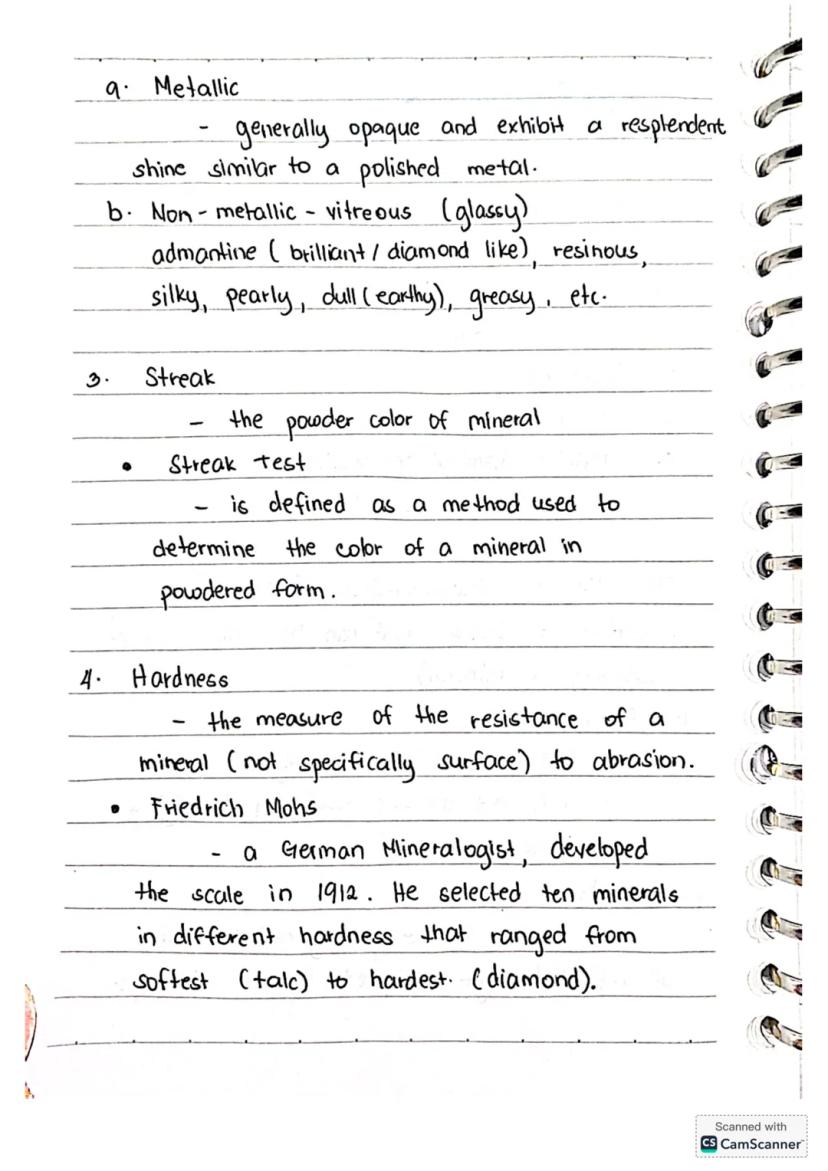 a. Metallic
- generally opaque and exhibit a resplendent
shine similar to a polished metal.
b. Non-metallic - vitreous (glassy)
admantine (brilliant / diamond like), resinous,
silky, pearly, dull (earthy), greasy, etc.
3. Streak
- the powder color of mineral
• Streak test
- is defined as a method used to
determine the color of a mineral in
powdered form.
4. Hardness
- the measure of the resistance of a
mineral (not specifically surface) to abrasion.
• Friedrich Mohs
- a German Mineralogist, developed
the scale in 1912. He selected ten minerals
in different hardness that ranged from
softest (talc) to hardest. (diamond).
Scanned with
CS CamScanner